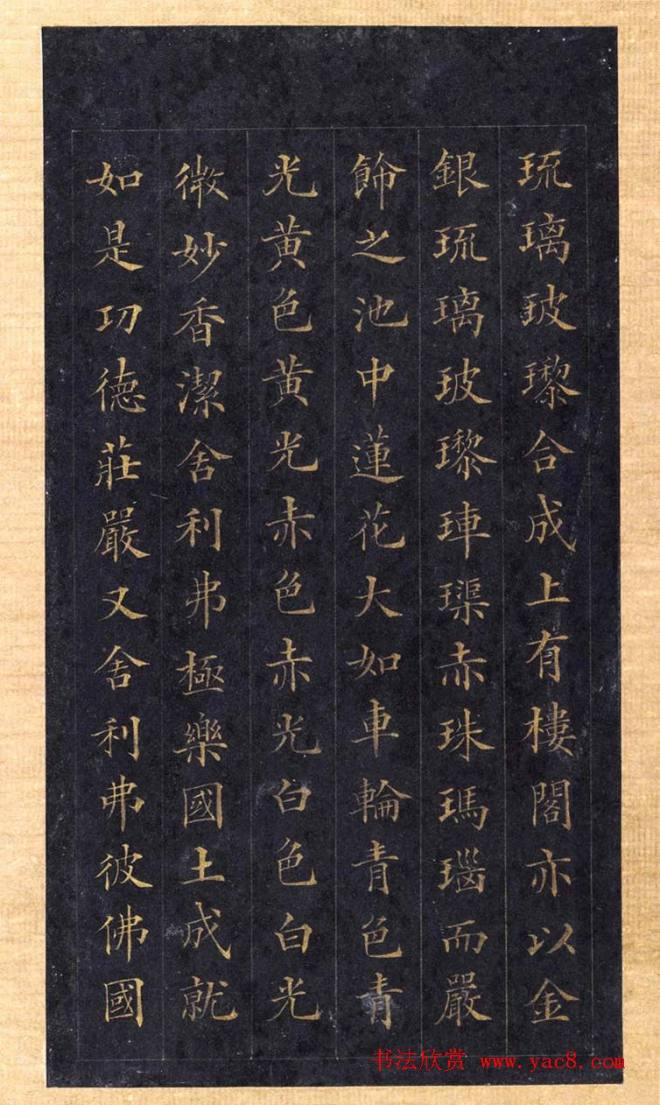 琉璃玻瓈合成上有樓閣亦以金
銀琉璃玻瓈硨璖赤珠瑪瑙而嚴
飾之池中蓮花大如車輪青色青
光黃色黃光赤色赤光白色白光
微妙香潔舍利弗極樂國土成就
如是功德莊嚴又舍利弗彼佛國
书法欣赏 www.yac8.com